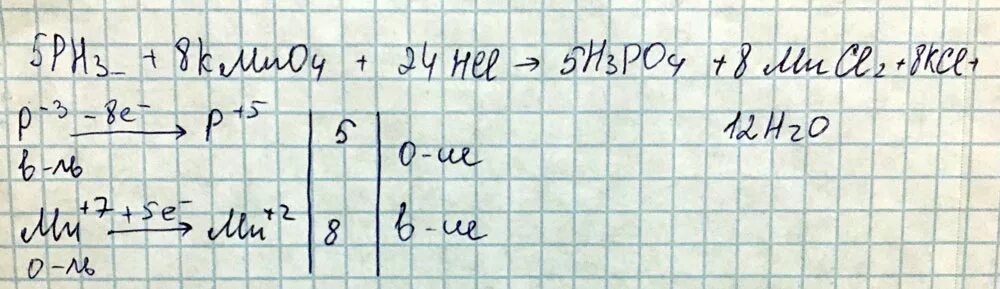 5PH₃ + 8KMnO₄ + 24HCl → 5H₃PO₄ + 8MnCl₂ + 8KCl +
12H₂O
P⁻³ –8e⁻ → P⁺⁵ | 5 | о-ие
в-ль
Mn⁺⁷ +5e⁻ → Mn⁺² | 8 | в-ие
о-ль